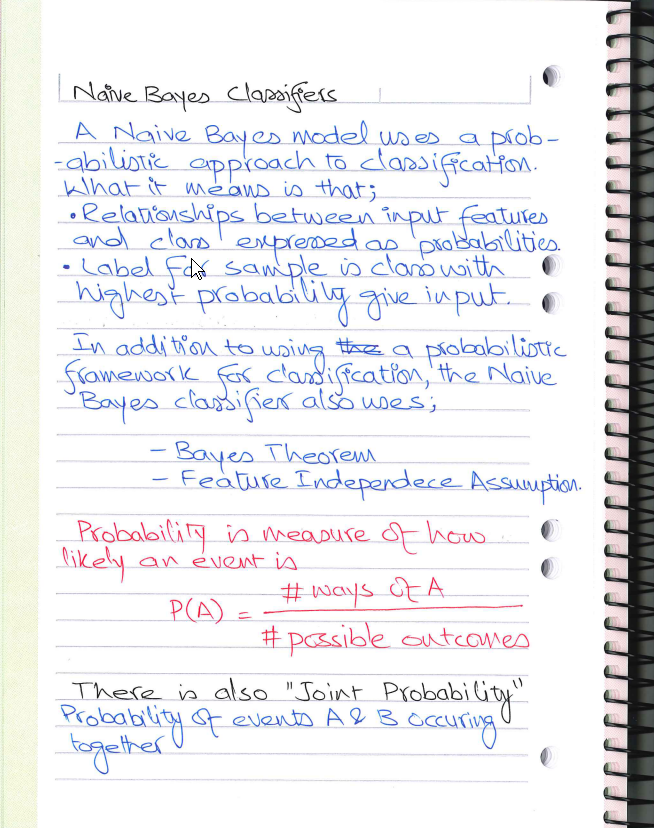 Naive Bayes Classifiers
A Naive Bayes model uses a prob-
-abilistic approach to classification.
What it means is that;
• Relationships between input features
and class expressed as probabilities.
• Label for sample is class with
highest probability give input.
In addition to using the a probabilistic
framework for classification, the Naive
Bayes classifier also uses;
- Bayes Theorem
- Feature Independece Assumption.
Probability is measure of how
likely an event is
P(A) = # ways of A
# possible outcomes
There is also "Joint Probability"
Probability of events A & B occuring
together